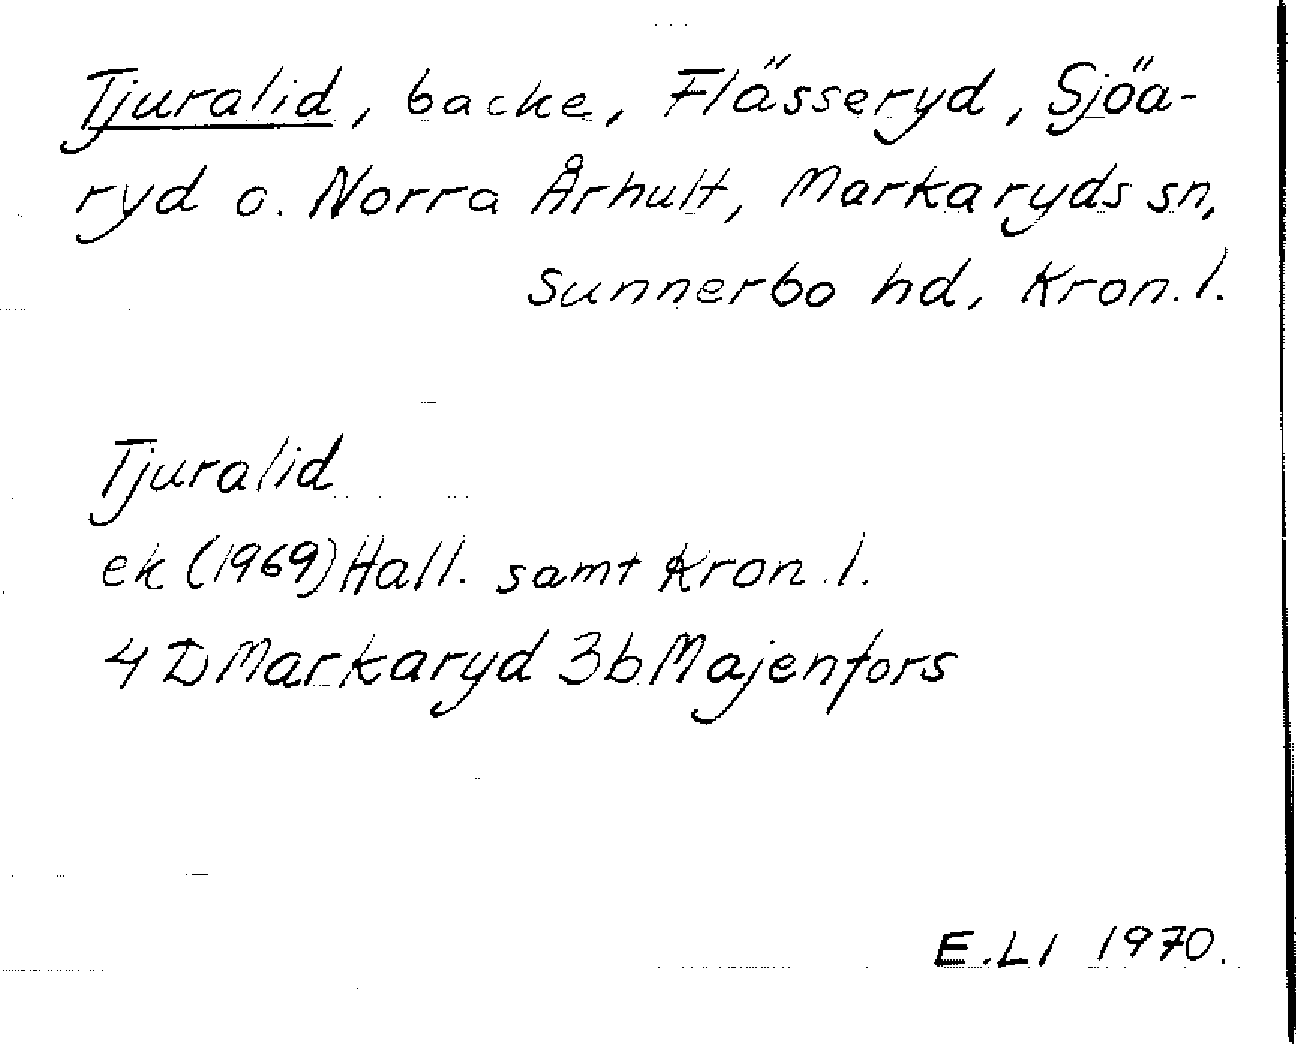 Tjuralid, backe, Flässeryd, Sjöa-
ryd o. Norra Århult, Markaryds sn,
Sunnerbo hd, Kron. l.
Tjuralid
ek (1969) Hall. samt Kron. l.
4 D Markaryd 3b Majenfors
E.Ll 1970.